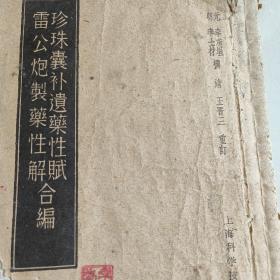 珍珠囊补遗藥性賦
雷公炮製藥性解合編
元 李東垣
明 李士材 撰
王晋三 重訂
上海科学技